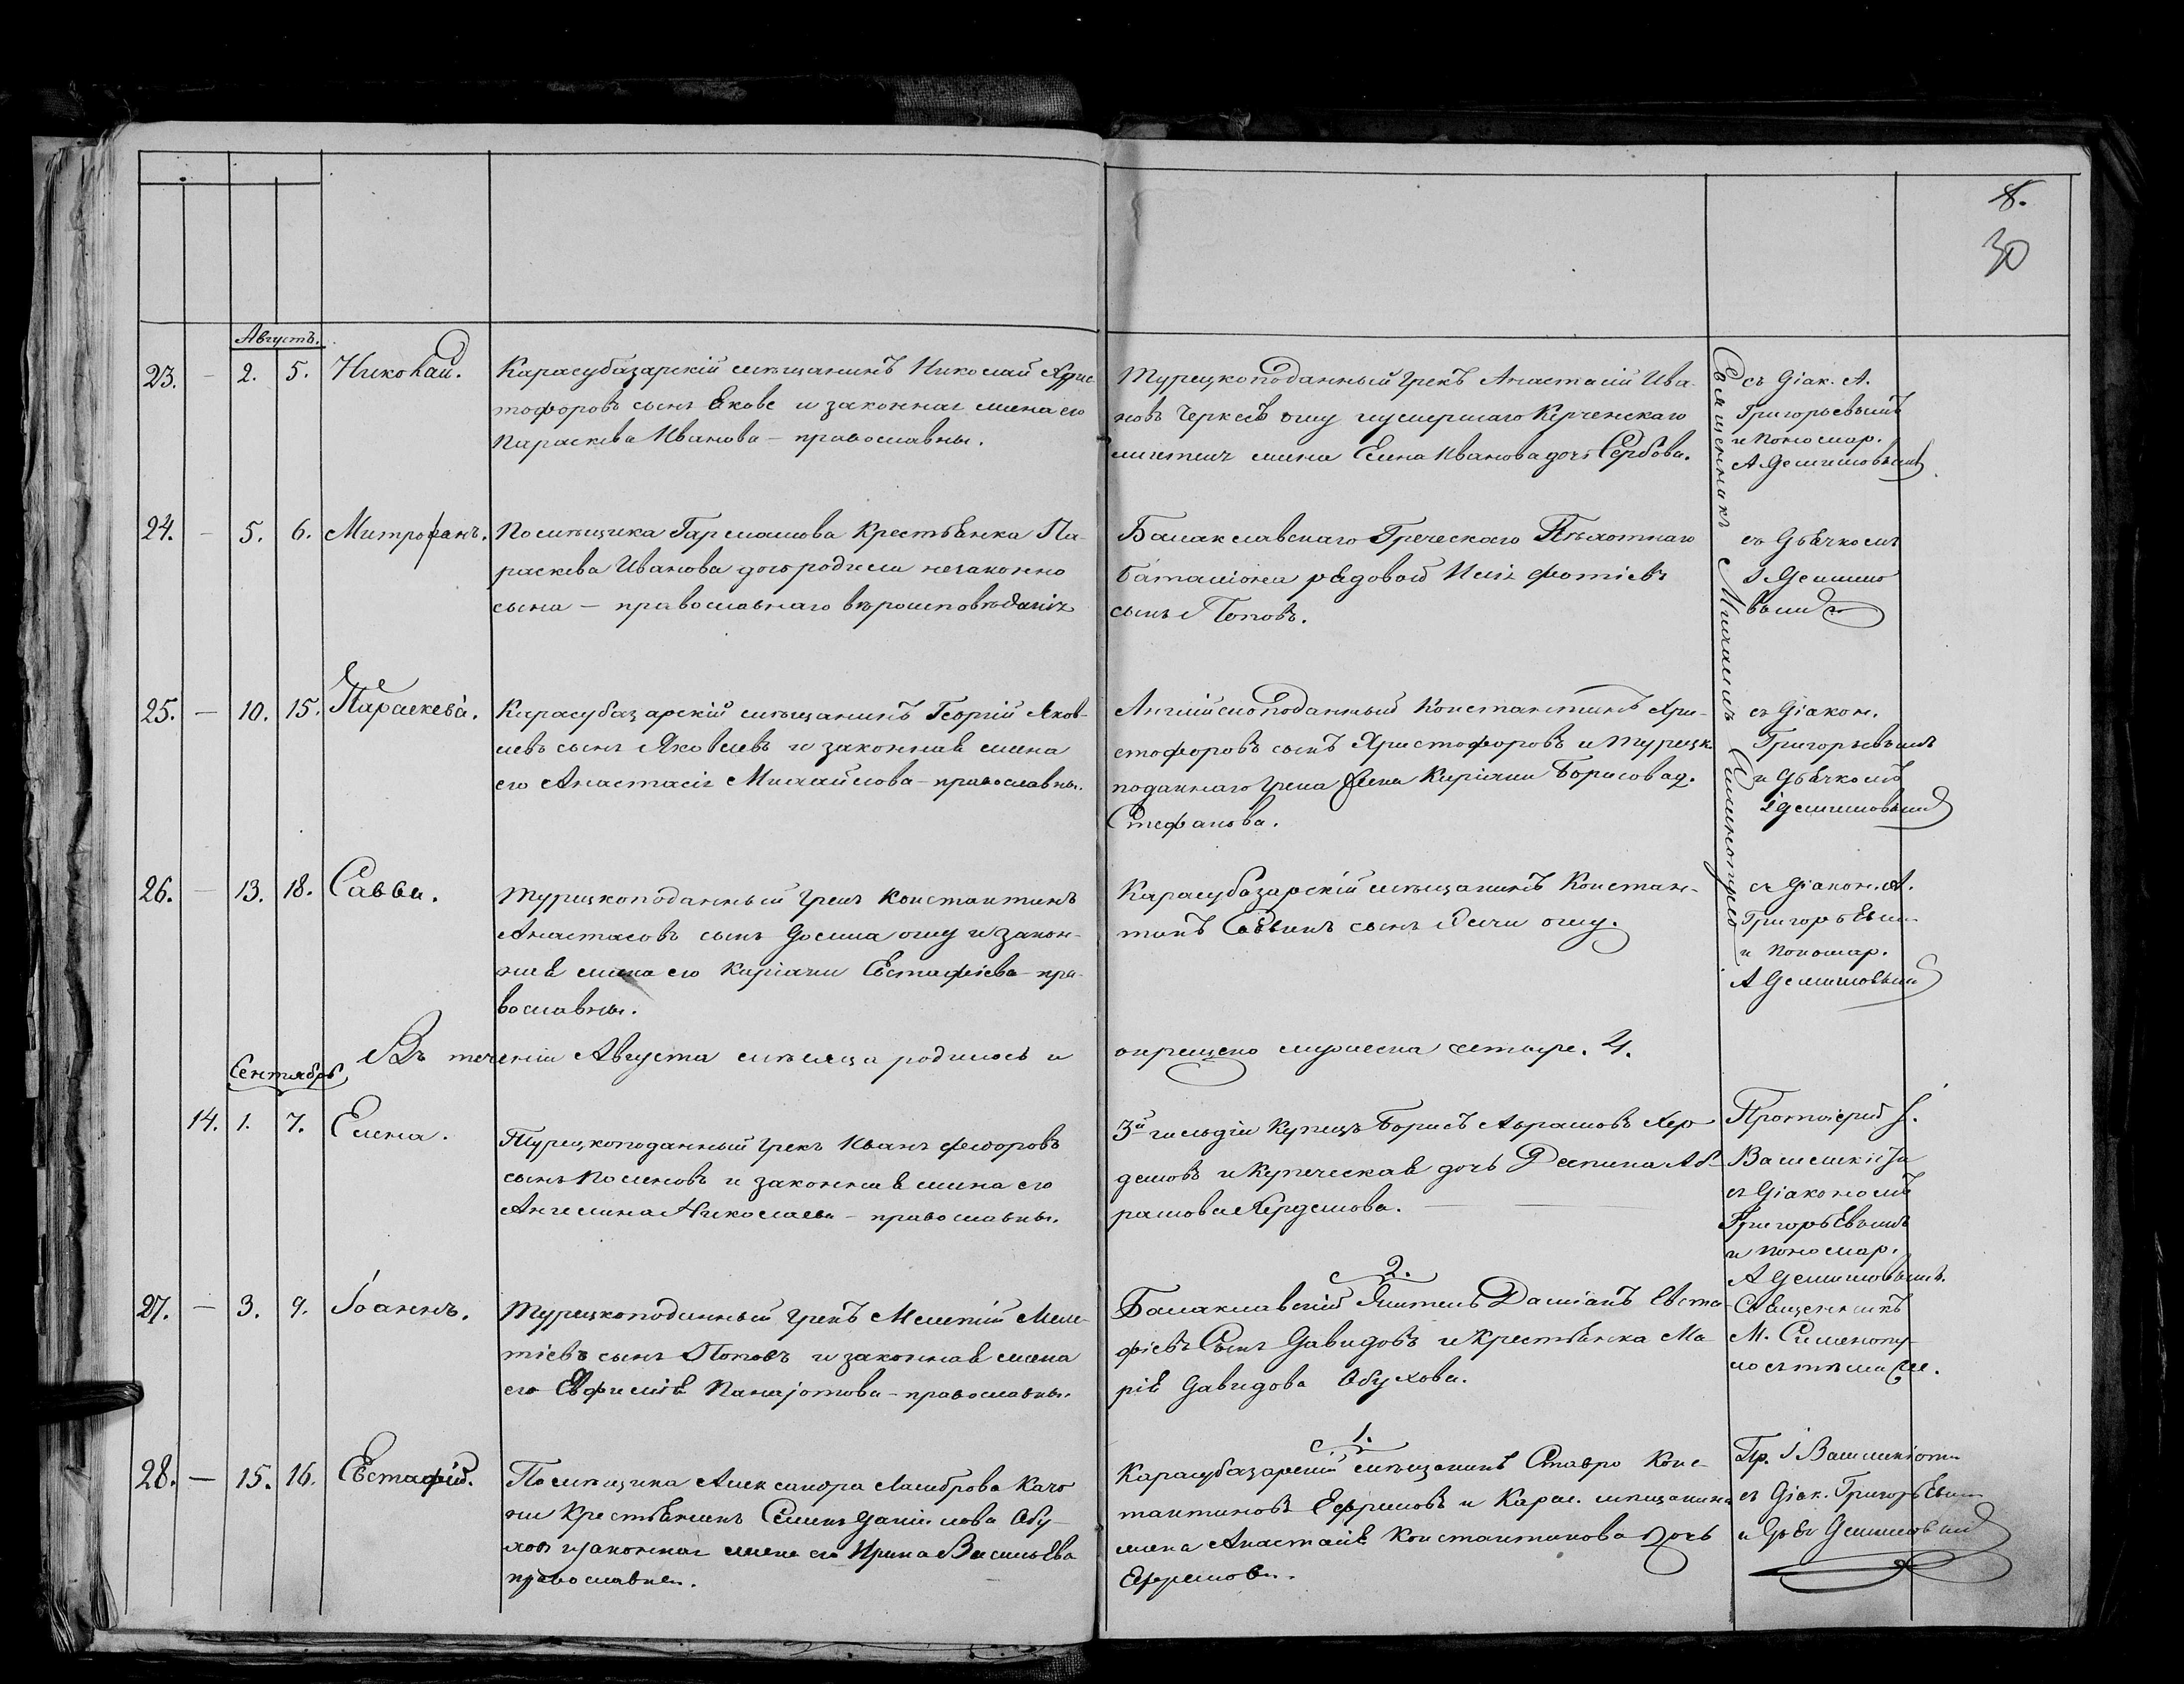 8.
30
Августъ.
23. – 2. 5. Николай.
Карасубазарскій мѣщанинъ Николай
тофоровъ сынъ Якове и законная жена его
Параскева Иванова – православны.
Турецкоподанный грекъ Анастасій Ива-
новъ Черкесъ оглу и умершаго Керченскаго
жена Елена Иванова дочь Сербова.
съ Діак. А.
Григорьевымъ
и Пономар.
А Демишовымъ
Священникъ Михаилъ
24. – 5. 6. Митрофанъ.
Помѣщика Гармашова Крестьянка Па-
раскева Иванова дочь родила незаконно
сына – православнаго вѣроисповѣданія
Балаклавскаго Греческаго Пѣхотнаго
баталіона рядовой Илія Фотіевъ
сынъ Поповъ.
съ Дьячкомъ
І Демишо
вымъ
25. – 10. 15. Параскева.
Карасубазарскій мѣщанинъ Георгій Яков-
левъ сынъ Яковлевъ и законная жена
его Анастасія Михайлова – православны.
Англійскоподанный Константинъ Хри-
стофоровъ сынъ Христофоровъ и турецк.
поданнаго грека жена Киріаки Борисова д.
Стефанова.
съ Діакон.
Григорьевымъ
и Дьячкомъ
І Демишовымъ
26. – 13. 18. Савва.
Турецкоподанный грекъ Константинъ
Анастасовъ сынъ Досма оглу и закон-
ная жена его Киріаки Евстафіева – пра-
вославны.
Карасубазарскій мѣщанинъ Констан-
тинъ Саввинъ сынъ оглу.
съ Діакон. А.
Григорьевым
и Пономар.
А Демишовымъ
Въ теченіи Августа мѣсяца родилось и
окрещено мужеска четыре. 4.
Сентябрь
14. 1. 7. Елена.
Турецкоподанный грекъ Иванъ Федоровъ
сынъ и законная жена его
Ангелина Николаева – православны.
3й гильдіи Купецъ Борисъ Аврамовъ Хер-
демовъ и Купеческая дочь Деспина Ав-
рамова Хердемова.
Протоіерей І.
съ Діакономъ
Григорьевымъ
и Пономар.
А Демишовымъ.
27. – 3. 9. Іоаннъ.
Турецкоподанный грекъ Мелетій Меле-
тіевъ сынъ Поповъ и законная жена
его Евфимія Панаіотова – православны.
2.
Балаклавскій Житель Даміанъ Евста-
фіевъ Сынъ Давидовъ и крестьянка Ма-
рія Давидова Обухова.
Священникъ
съ тѣми же.
28. – 15. 16. Евстафій.
Помѣщика Александра Качо
ни Крестьянинъ Семенъ Даніилова Обу-
ховъ и законная жена его Ирина Васильева
православны.
1.
Карасубазарскій мѣщанинъ Ставро Конс-
тантиновъ Ефремовъ и Карас. мѣщанина
жена Анастасія Константинова дочь
Ефремова.
Пр. І
съ Діак. Григорьевым
и Дьяч Демишовымъ